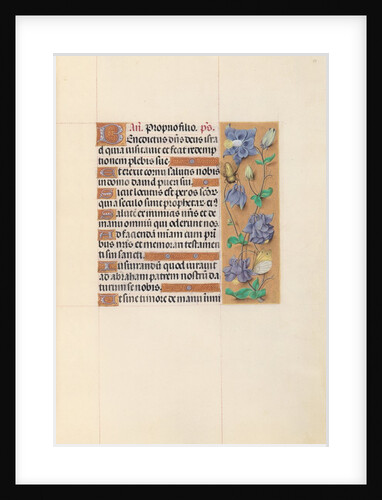 An̄. Proprio filio. ps̄.
Benedictus dn̄s deus isra
el quia visitauit et fecit redemp
tionem plebis sue.
Et erexit cornu salutis nobis
in domo dauid pueri sui.
Sicut locutus est per os sctōr.
qui a seculo sunt prophetar. ei9
Salutē ex inimicis nr̄is et de
manu omniū qui oderunt nos.
Ad faciendā miam̄ cum patri
bus nr̄is et memorari testamen
ti sui sancti.
Iusiurandū quod iurauit
ad abraham patrem nostrū da
turum se nobis.
Ut sine timore de manu inimi